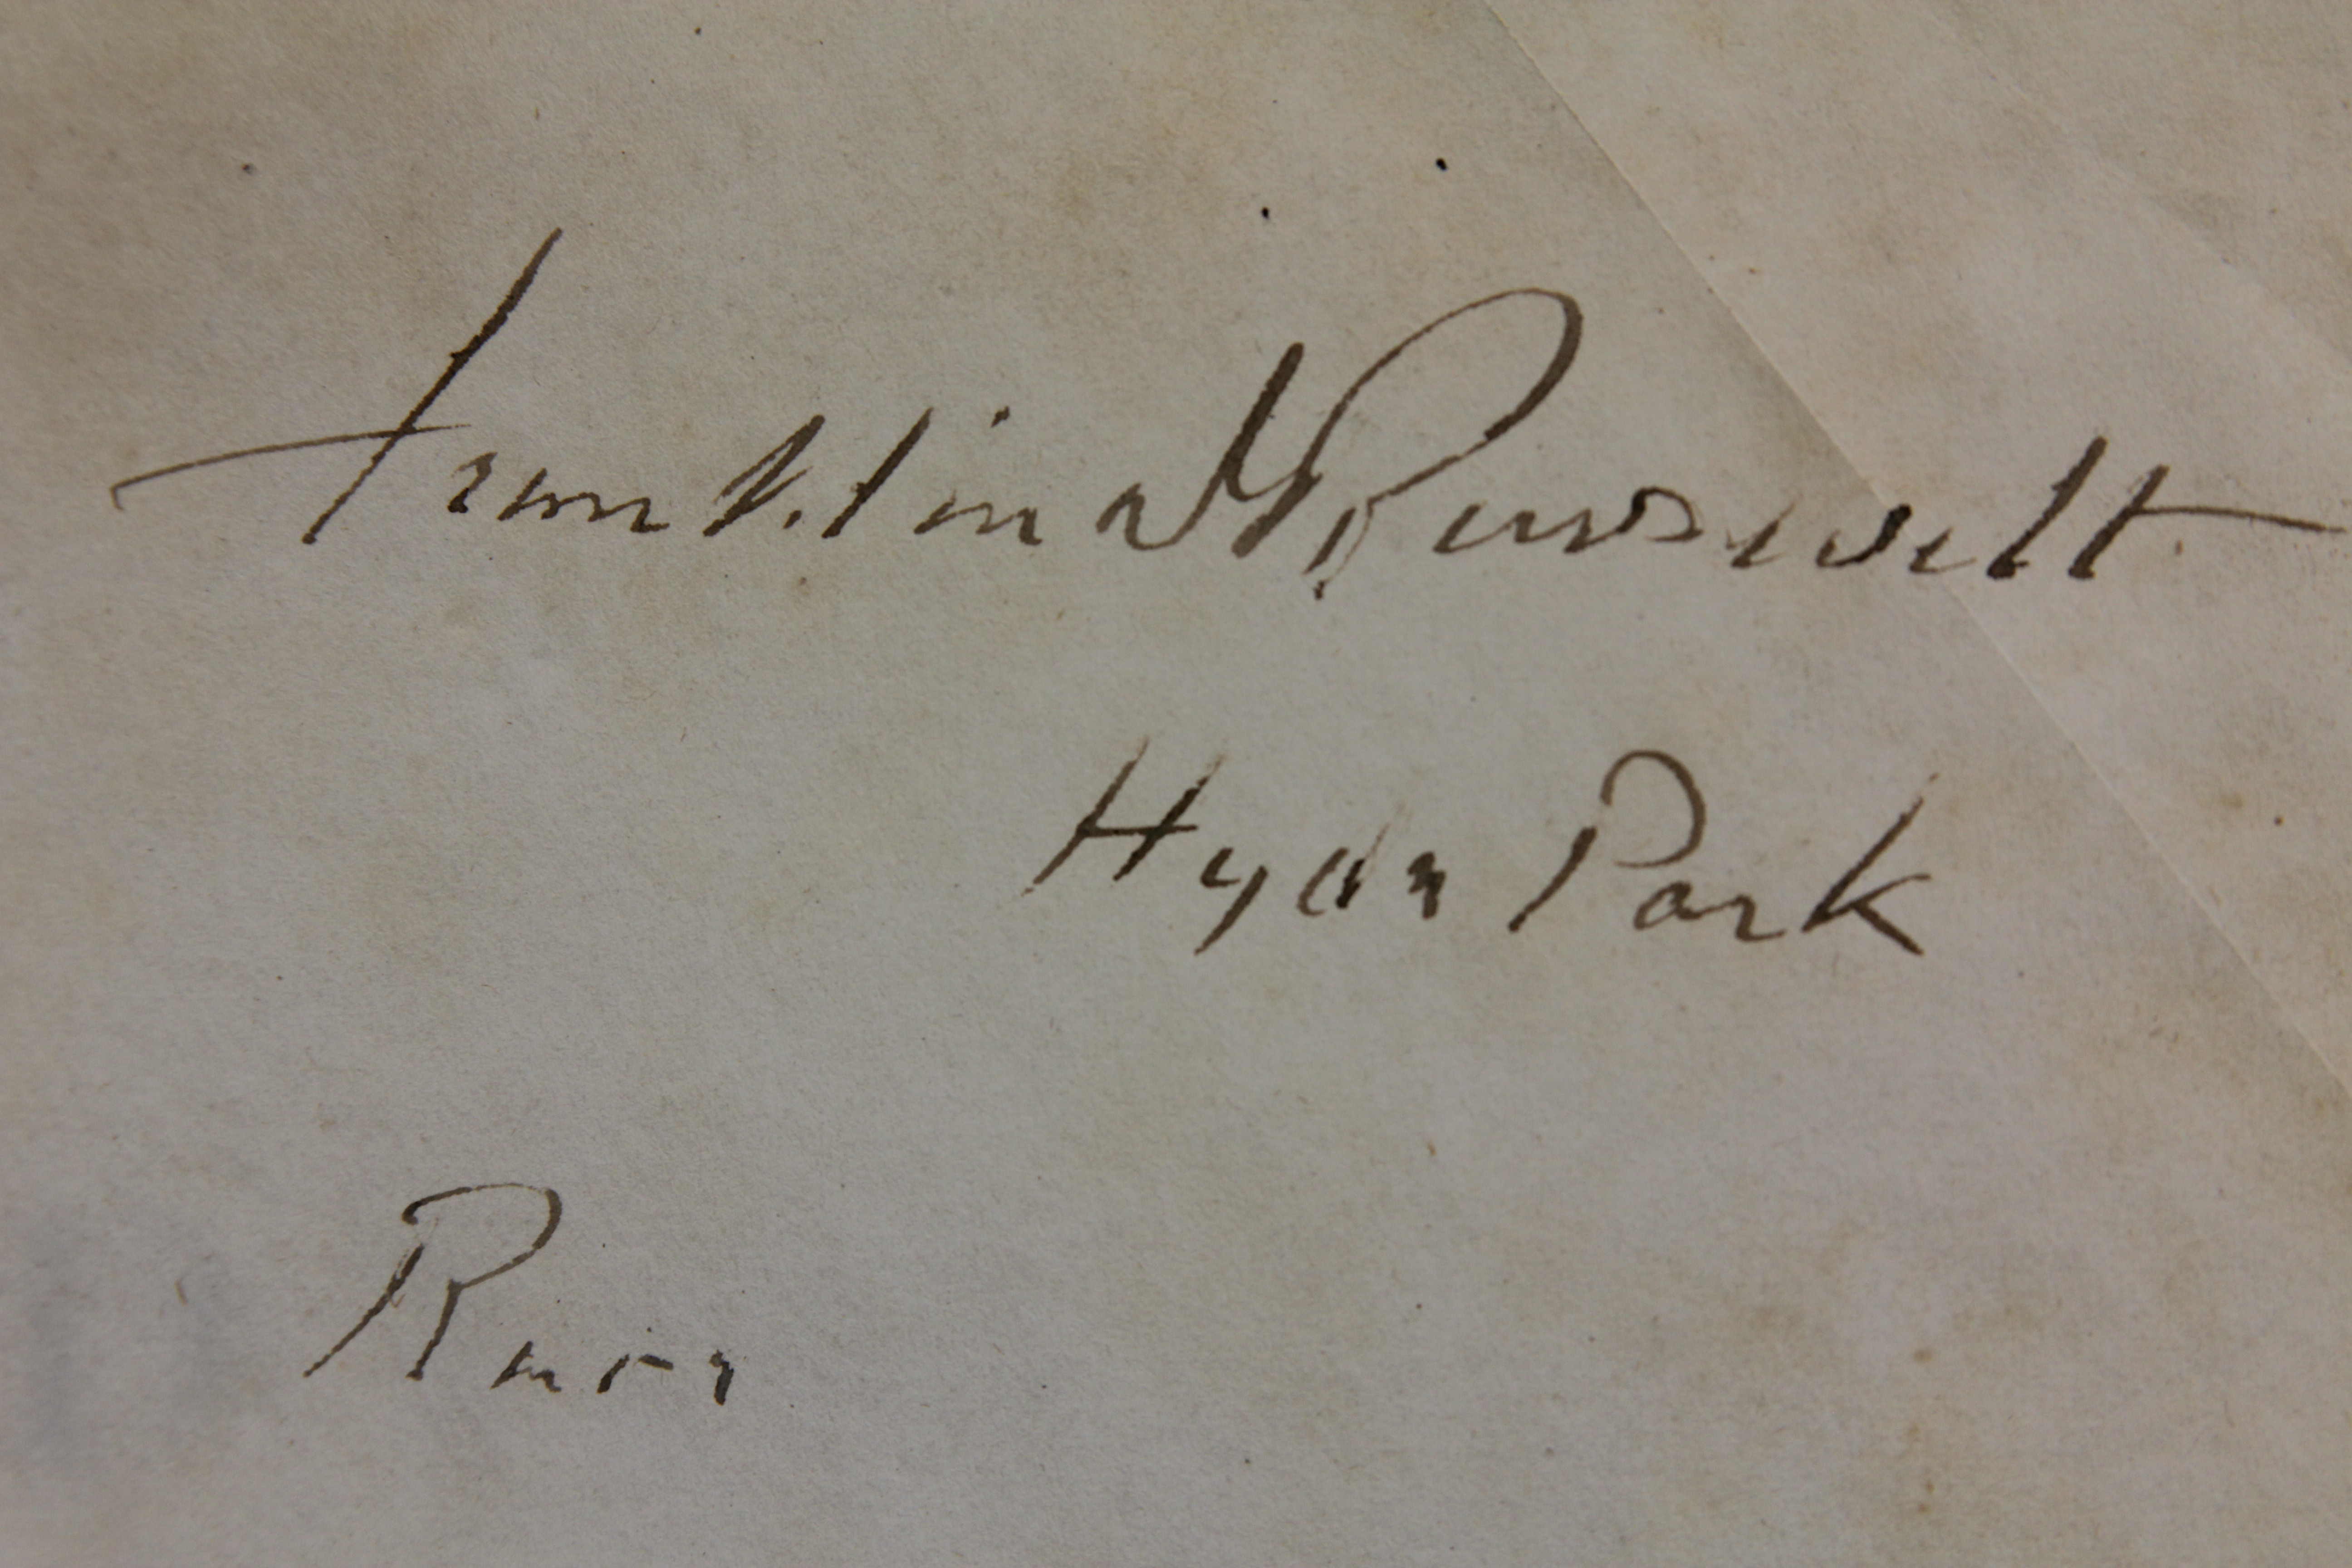 Franklin D Roosevelt
Hyde Park
Rare